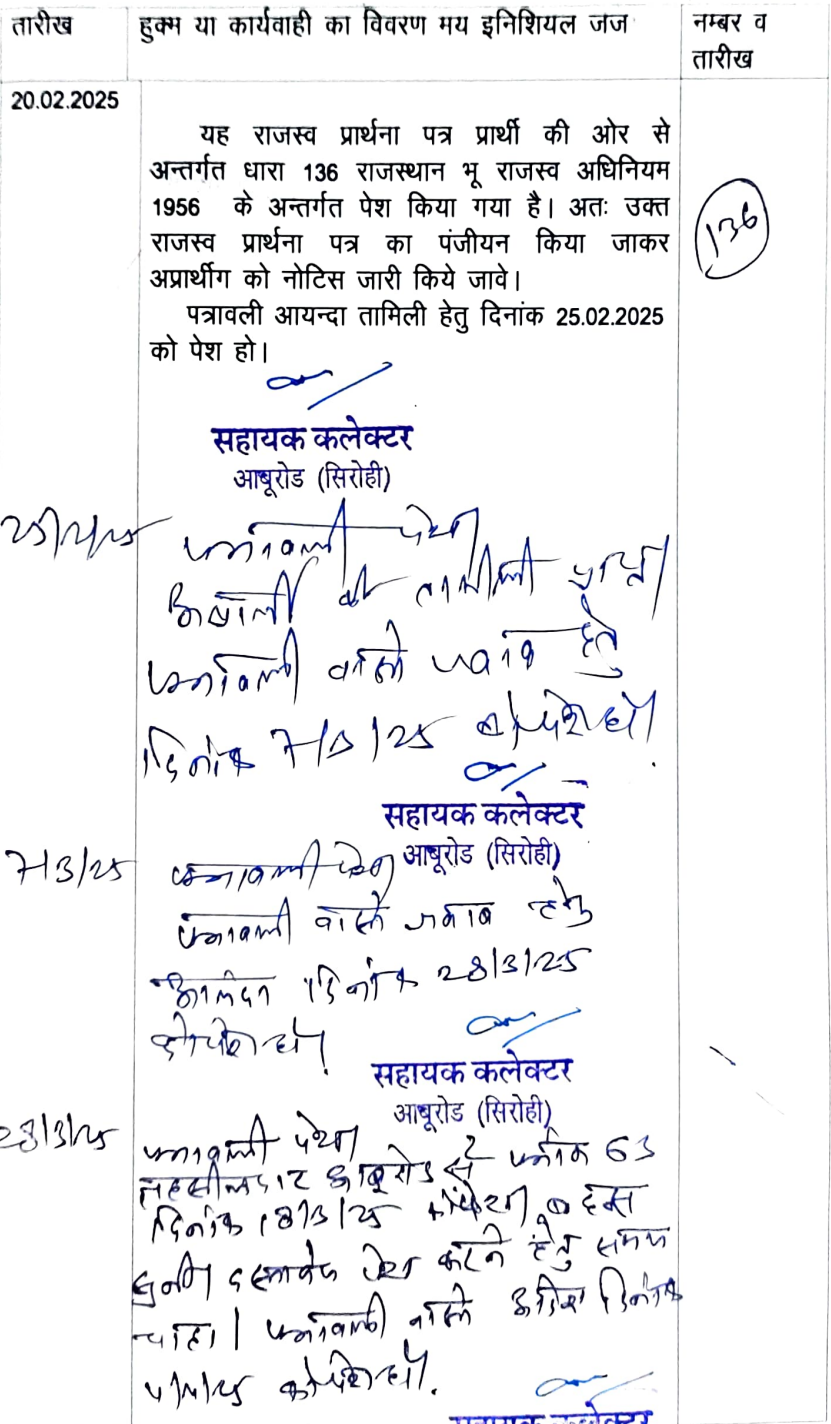 तारीख हुक्म या कार्यवाही का विवरण मय इनिशियल जज नम्बर व
तारीख
20.02.2025
यह राजस्व प्रार्थना पत्र प्रार्थी की ओर से
अन्तर्गत धारा 136 राजस्थान भू राजस्व अधिनियम
1956 के अन्तर्गत पेश किया गया है। अतः उक्त
राजस्व प्रार्थना पत्र का पंजीयन किया जाकर
अप्रार्थीग को नोटिस जारी किये जावे।
136
पत्रावली आयन्दा तामिली हेतु दिनांक 25.02.2025
को पेश हो।
सहायक कलेक्टर
आबूरोड (सिरोही)
25/2/25 पत्रावली पेश।
की तामीली
पत्रावली वास्ते जवाब हेतु
दिनांक 7/3/25 को पेश हो।
सहायक कलेक्टर
आबूरोड (सिरोही)
7/3/25 पत्रावली पेश।
पत्रावली वास्ते जवाब हेतु
आयन्दा दिनांक 28/3/25
को पेश हो।
सहायक कलेक्टर
आबूरोड (सिरोही)
28/3/25 पत्रावली पेश।
तहसीलदार आबूरोड से 63
दिनांक 18/3/25 बहस
सुनी। दस्तावेज पेश करने हेतु समय
चाहा। पत्रावली वास्ते आदेश दिनांक
को पेश हो।
सहायक कलेक्टर